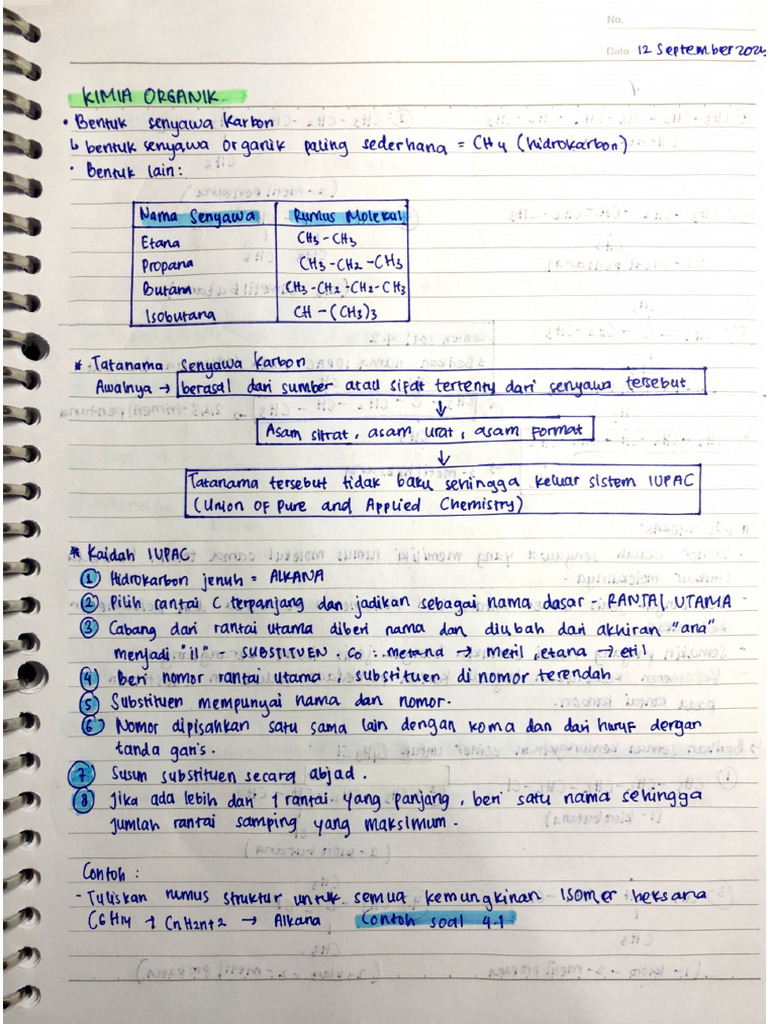 No.
Date 12 September 202
KIMIA ORGANIK
• Bentuk senyawa karbon
↳ bentuk senyawa organik paling sederhana = CH4 (hidrokarbon)
• Bentuk lain:
Nama Senyawa | Rumus Molekul
Etana | CH3 - CH3
Propana | CH3 - CH2 - CH3
Butana | CH3 - CH2 - CH2 - CH3
Isobutana | CH - (CH3)3
* Tatanama senyawa karbon
Awalnya → berasal dari sumber atau sifat tertentu dari senyawa tersebut
↓
Asam sitrat, asam urat, asam format
↓
Tatanama tersebut tidak baku sehingga keluar sistem IUPAC
(Union Of Pure and Applied Chemistry)
* Kaidah IUPAC
① Hidrokarbon jenuh = ALKANA
② Pilih rantai C terpanjang dan jadikan sebagai nama dasar - RANTAI UTAMA
③ Cabang dari rantai utama diberi nama dan diubah dari akhiran "ana"
menjadi "il" - SUBSTITUEN. Co : metana → metil, etana → etil
④ Beri nomor rantai utama, substituen di nomor terendah
⑤ Substituen mempunyai nama dan nomor.
⑥ Nomor dipisahkan satu sama lain dengan koma dan dari huruf dengan
tanda garis.
⑦ Susun substituen secara abjad.
⑧ Jika ada lebih dari 1 rantai yang panjang, beri satu nama sehingga
jumlah rantai samping yang maksimum.
Contoh :
- Tuliskan rumus struktur untuk semua kemungkinan isomer heksana
C6H14 → CnH2n+2 → Alkana Contoh soal 4.1